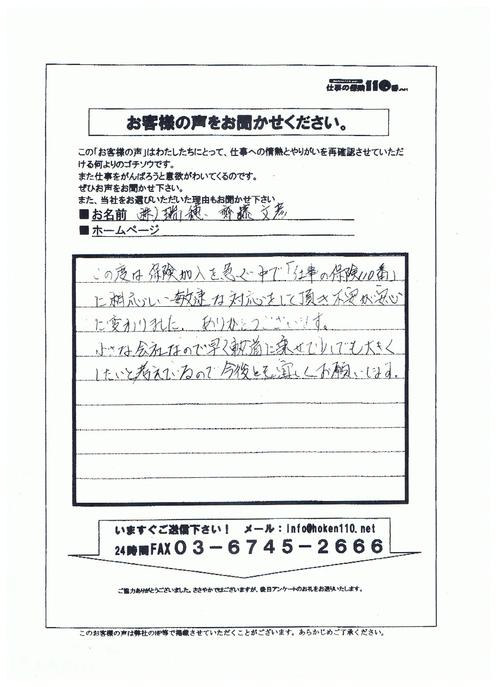 仕事の保険110番
お客様の声をお聞かせください。
この「お客様の声」はわたしたちにとって、仕事への情熱とやりがいを再確認させていただ
ける何よりのゴチソウです。
また仕事をがんばろうと意欲がわいてくるのです。
ぜひお声をお聞かせ下さい。
また、当社をお選びいただいた理由もお聞かせ下さい
■お名前 (株)瑞穂 齊藤 文彦
■ホームページ
この度は保険加入を急ぐ中で「仕事の保険110番」
に相応しい敏速な対応をして頂き不安が安心
に変わりました。ありがとうございます。
小さな会社なので早く軌道に乗せて少しでも大きく
したいと考えているので今後とも宜しくお願いします。
いますぐご送信下さい! メール:info@hoken110.net
24時間FAX03-6745-2666
ご協力ありがとうございました。ささやかではございますが、後日アンケートのお礼をお送りいたします。
このお客様の声は弊社のHP等で掲載させていただくことがございます。あらかじめご了承ください。